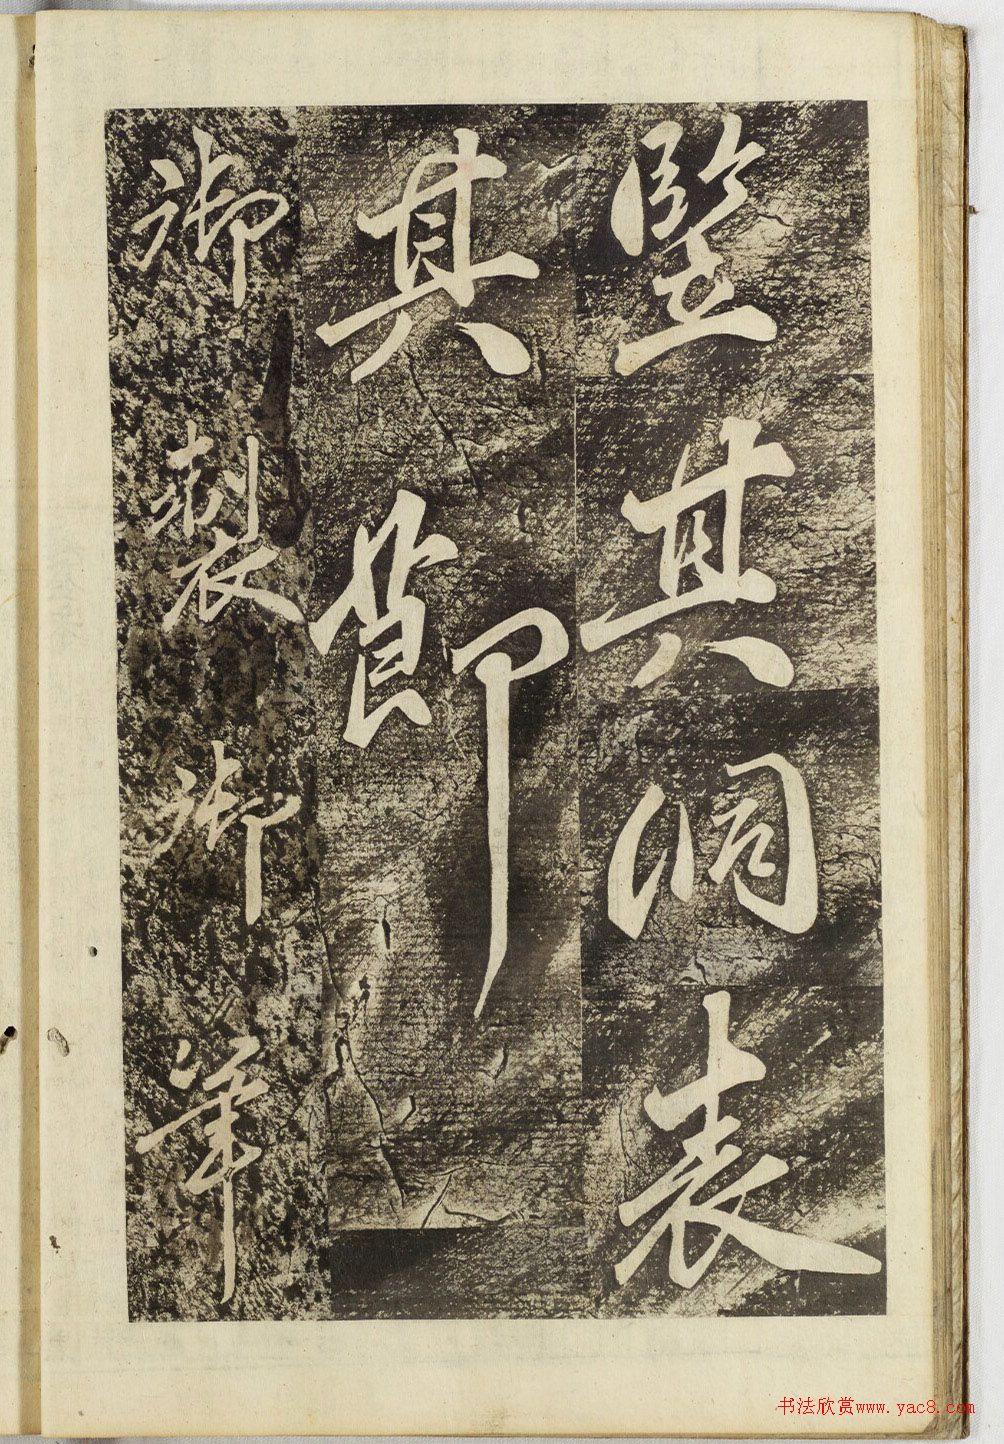 竪其洞表
其節
御製御筆
书法欣赏www.yac8.com